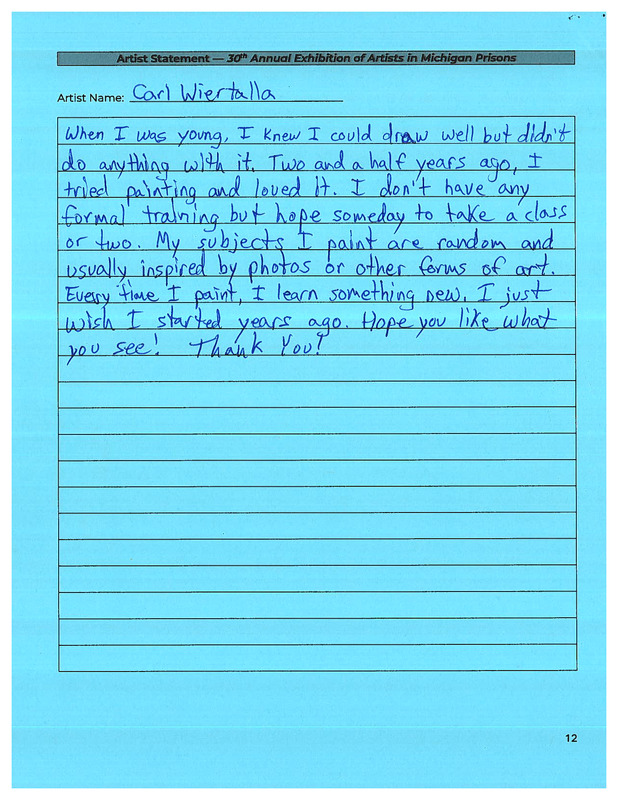 Artist Statement — 30th Annual Exhibition of Artists in Michigan Prisons
Artist Name: Carl Wiertalla
When I was young, I knew I could draw well but didn't
do anything with it. Two and a half years ago, I
tried painting and loved it. I don't have any
formal training but hope someday to take a class
or two. My subjects I paint are random and
usually inspired by photos or other forms of art.
Every time I paint, I learn something new. I just
wish I started years ago. Hope you like what
you see! Thank You!
12